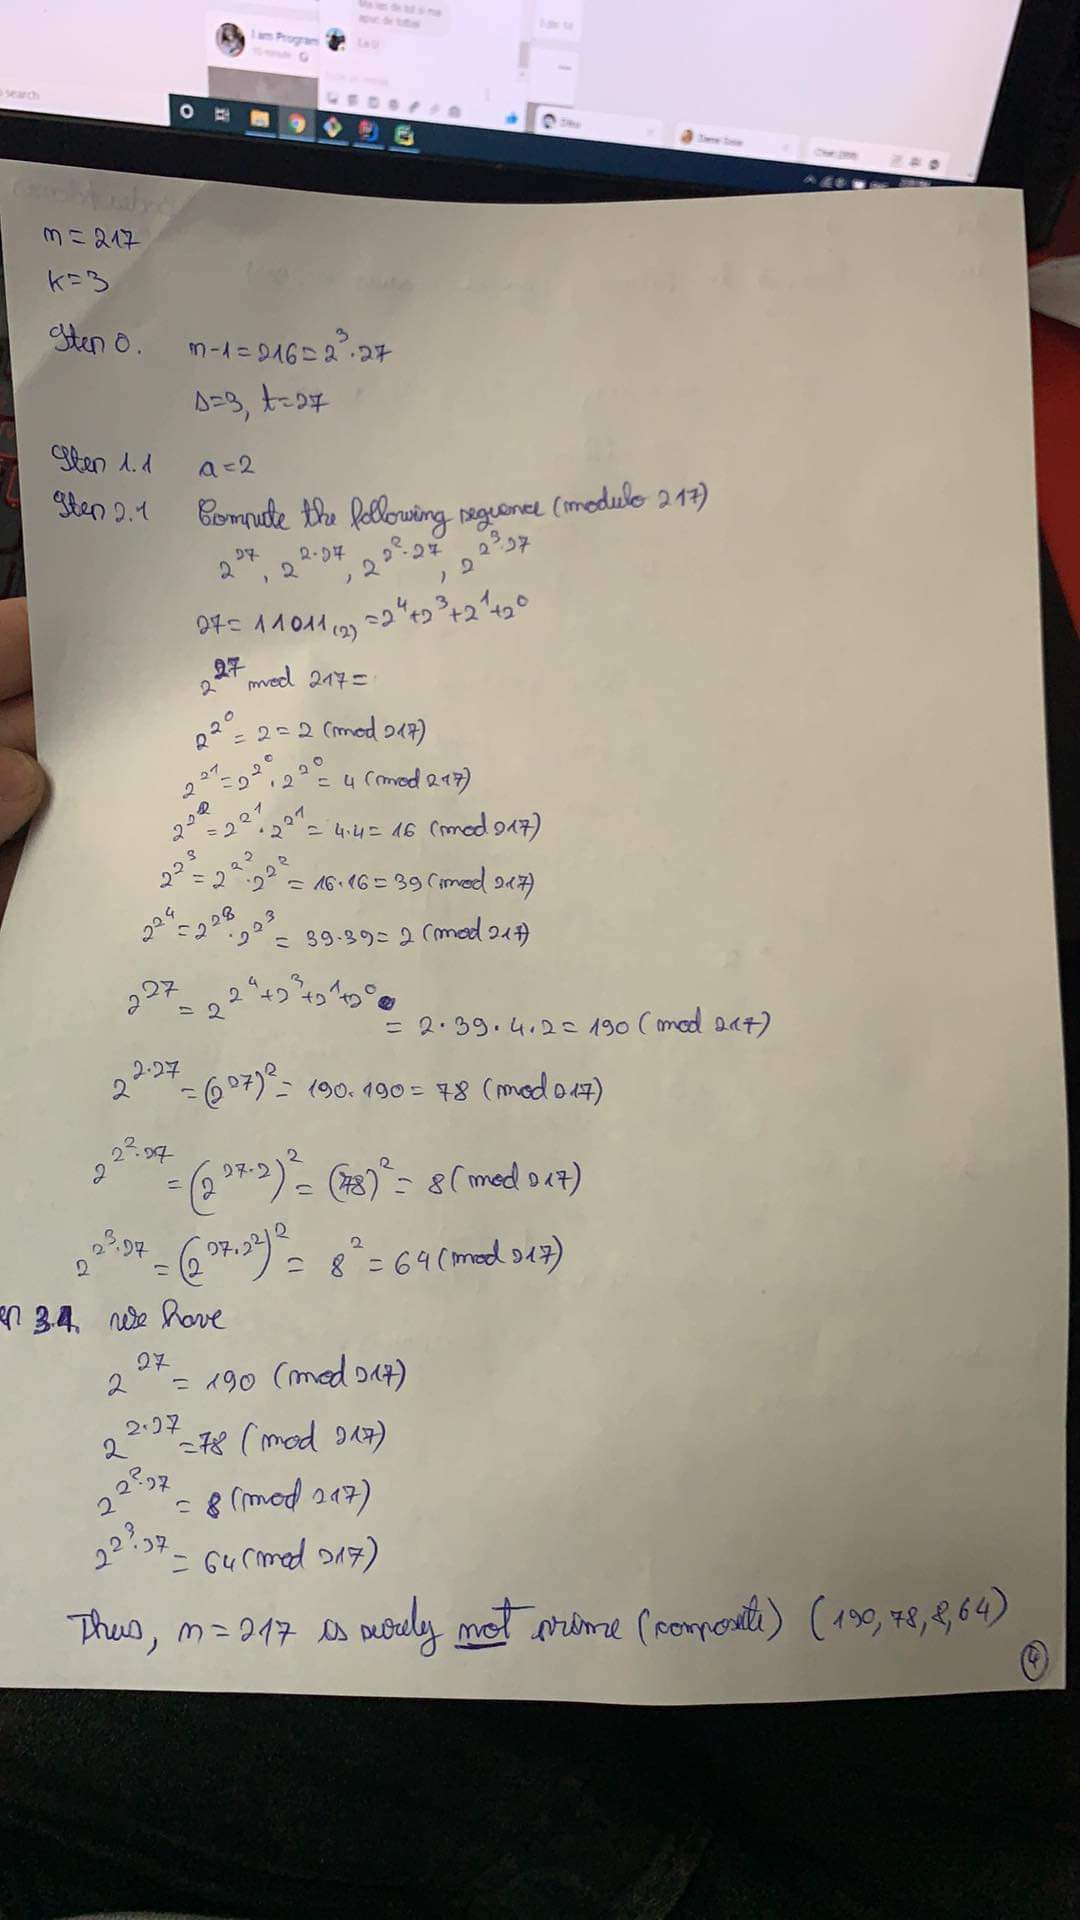 Ma iau de tot si ma
apuc de fotbal
I am Program
10 minute
La 17
search
Chat (399)
n = 217
k = 3
Step 0. n-1 = 216 = 2^3 · 27
s = 3, t = 27
Step 1.1 a = 2
Step 2.1 Compute the following sequence (modulo 217)
2^27, 2^{2·27}, 2^{2^2·27}, 2^{2^3·27}
27 = 11011_(2) = 2^4 + 2^3 + 2^1 + 2^0
2^27 mod 217 =
2^{2^0} = 2 = 2 (mod 217)
2^{2^1} = 2^{2^0} · 2^{2^0} = 4 (mod 217)
2^{2^2} = 2^{2^1} · 2^{2^1} = 4·4 = 16 (mod 217)
2^{2^3} = 2^{2^2} · 2^{2^2} = 16·16 = 39 (mod 217)
2^{2^4} = 2^{2^3} · 2^{2^3} = 39·39 = 2 (mod 217)
2^27 = 2^{2^4+2^3+2^1+2^0} = 2·39·4·2 = 190 (mod 217)
2^{2·27} = (2^27)^2 = 190·190 = 78 (mod 217)
2^{2^2·27} = (2^{27·2})^2 = (78)^2 = 8 (mod 217)
2^{2^3·27} = (2^{27·2^2})^2 = 8^2 = 64 (mod 217)
ep 3.1. we have
2^27 = 190 (mod 217)
2^{2·27} = 78 (mod 217)
2^{2^2·27} = 8 (mod 217)
2^{2^3·27} = 64 (mod 217)
Thus, n = 217 is surely not prime (composite) (190, 78, 8, 64)
4